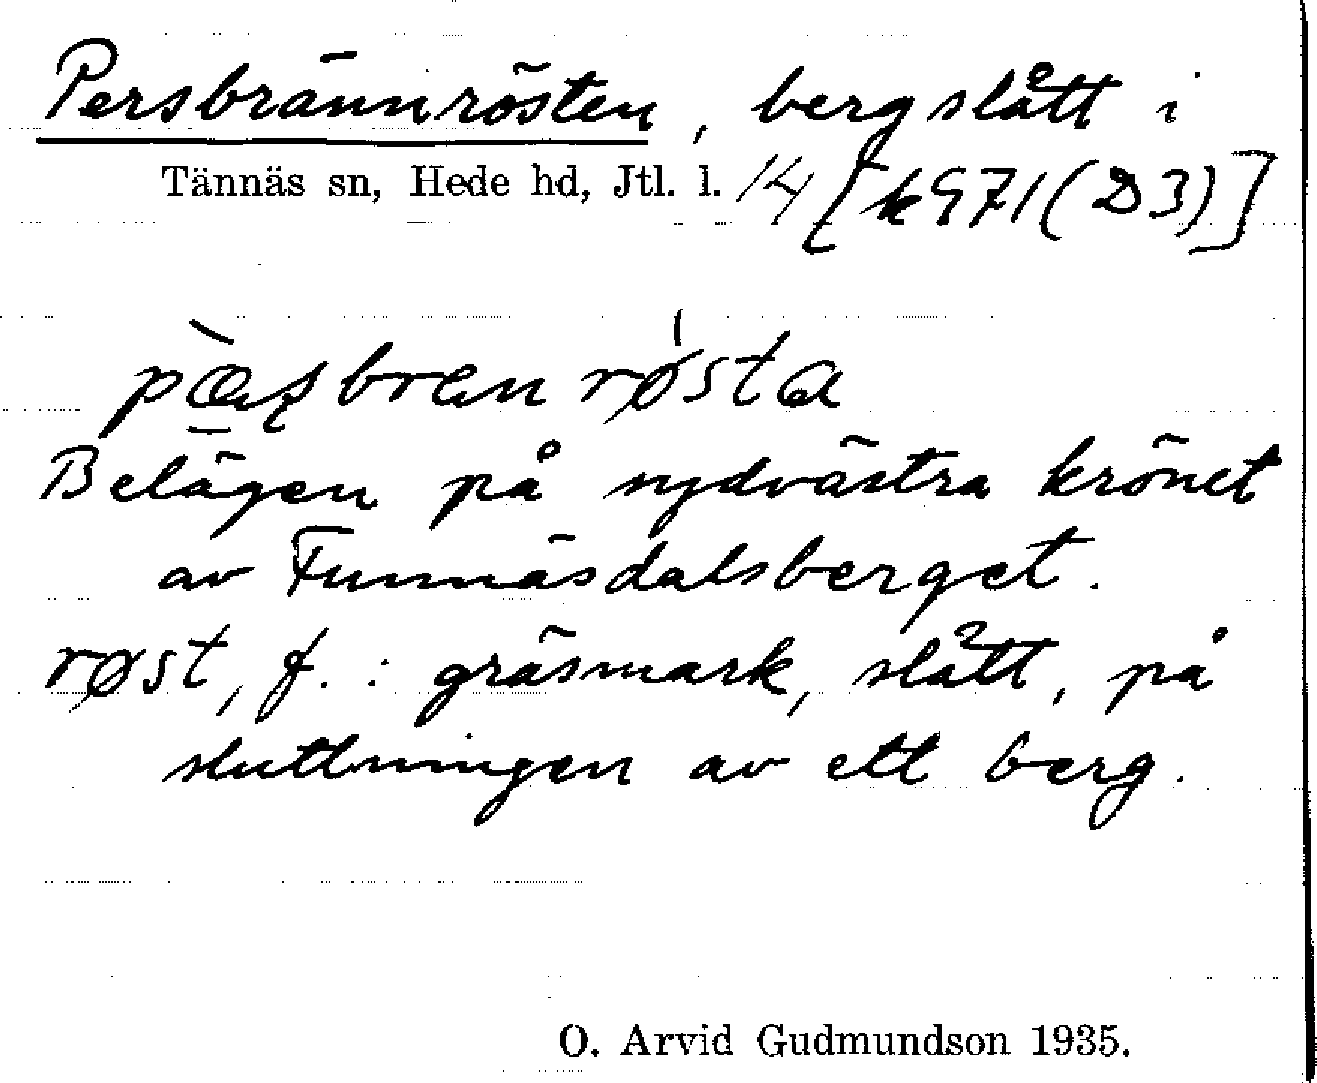 Persbrännrösten, bergslått i
Tännäs sn, Hede hd, Jtl. l. 14 [k971(D3)]
pæ̀s̩brenrǿsta
Belägen på sydvästra krönet
av Funnäsdalsberget.
røst, f. : gräsmark, slått, på
sluttningen av ett berg.
O. Arvid Gudmundson 1935.